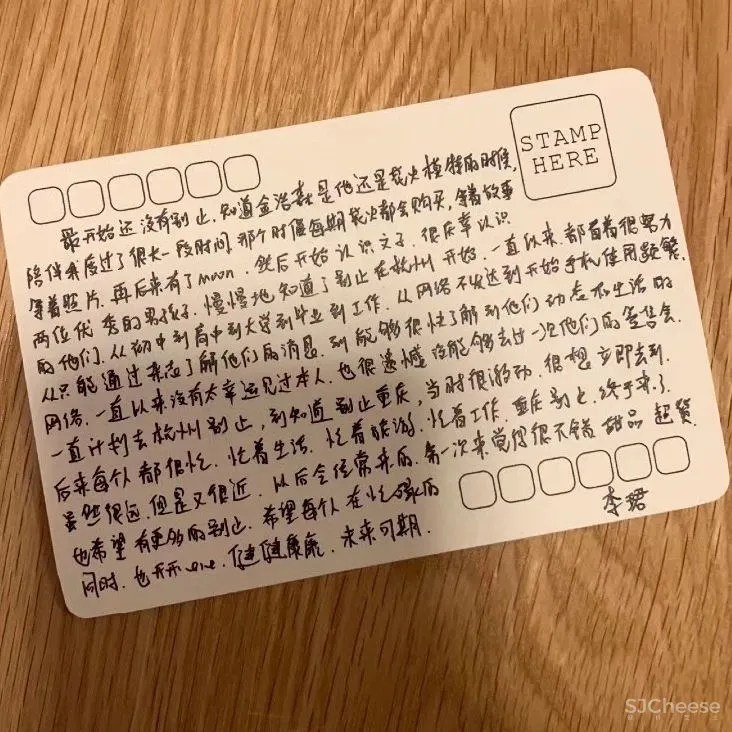 STAMP
HERE
最开始还没有别止,知道金浩森是他还是花火模特的时候,
陪伴我度过了很长一段时间,那个时候每期花火都会购买,看着故事
等着照片.再后来有了moon.然后开始认识文子.很庆幸认识
两位优秀的男孩子.慢慢地知道了别止在杭州开始.一直以来.都有着很努力
的他们.从初中到高中到大学到毕业到工作.从网络不发达到开始手机使用频繁.
从只能通过杂志了解他们的消息.到能够很快了解到他们动态和生活的
网络.一直以来没有太幸运见过本人.也很遗憾没能够去过一次他们的签售会.
一直计划去杭州别止,到知道别止重庆,当时很激动.很想立即去到.
后来每个人都很忙.忙着生活.忙着旅游.忙着工作.重庆别止.终于来了
虽然很远.但是又很近.以后会经常来的.第一次来觉得很不错 甜品 超赞.
也希望有更多的别止.希望每个人在忙碌的
同时.也开开心心.健健康康.未来可期.
李珺
SJCheese